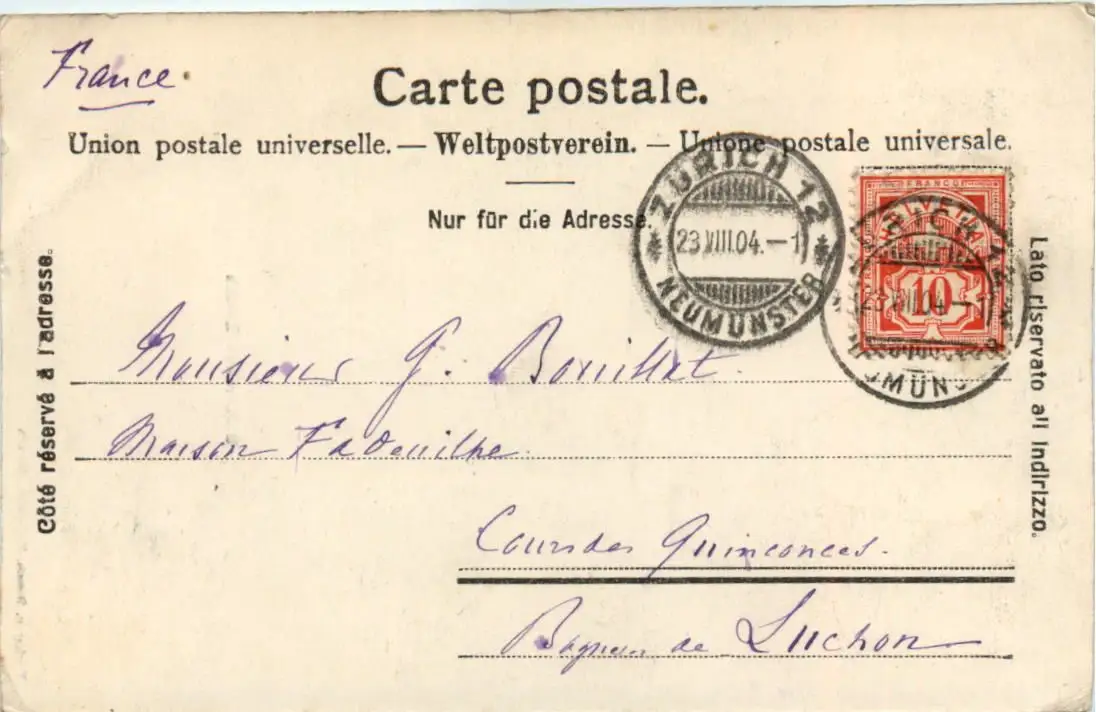 France
Carte postale.
Union postale universelle. — Weltpostverein. — Unione postale universale.
Nur für die Adresse.
ZÜRICH 12
23.VIII.04.–1
NEUMÜNSTER
FRANCO
HELVETIA
10
23.VIII.04–1
Côté réservé à l'adresse.
Lato riservato all indirizzo.
Monsieur G. Bouillat.
Maison Fadeuilhe
Cours des Quinconces.
Bagneres de Luchon